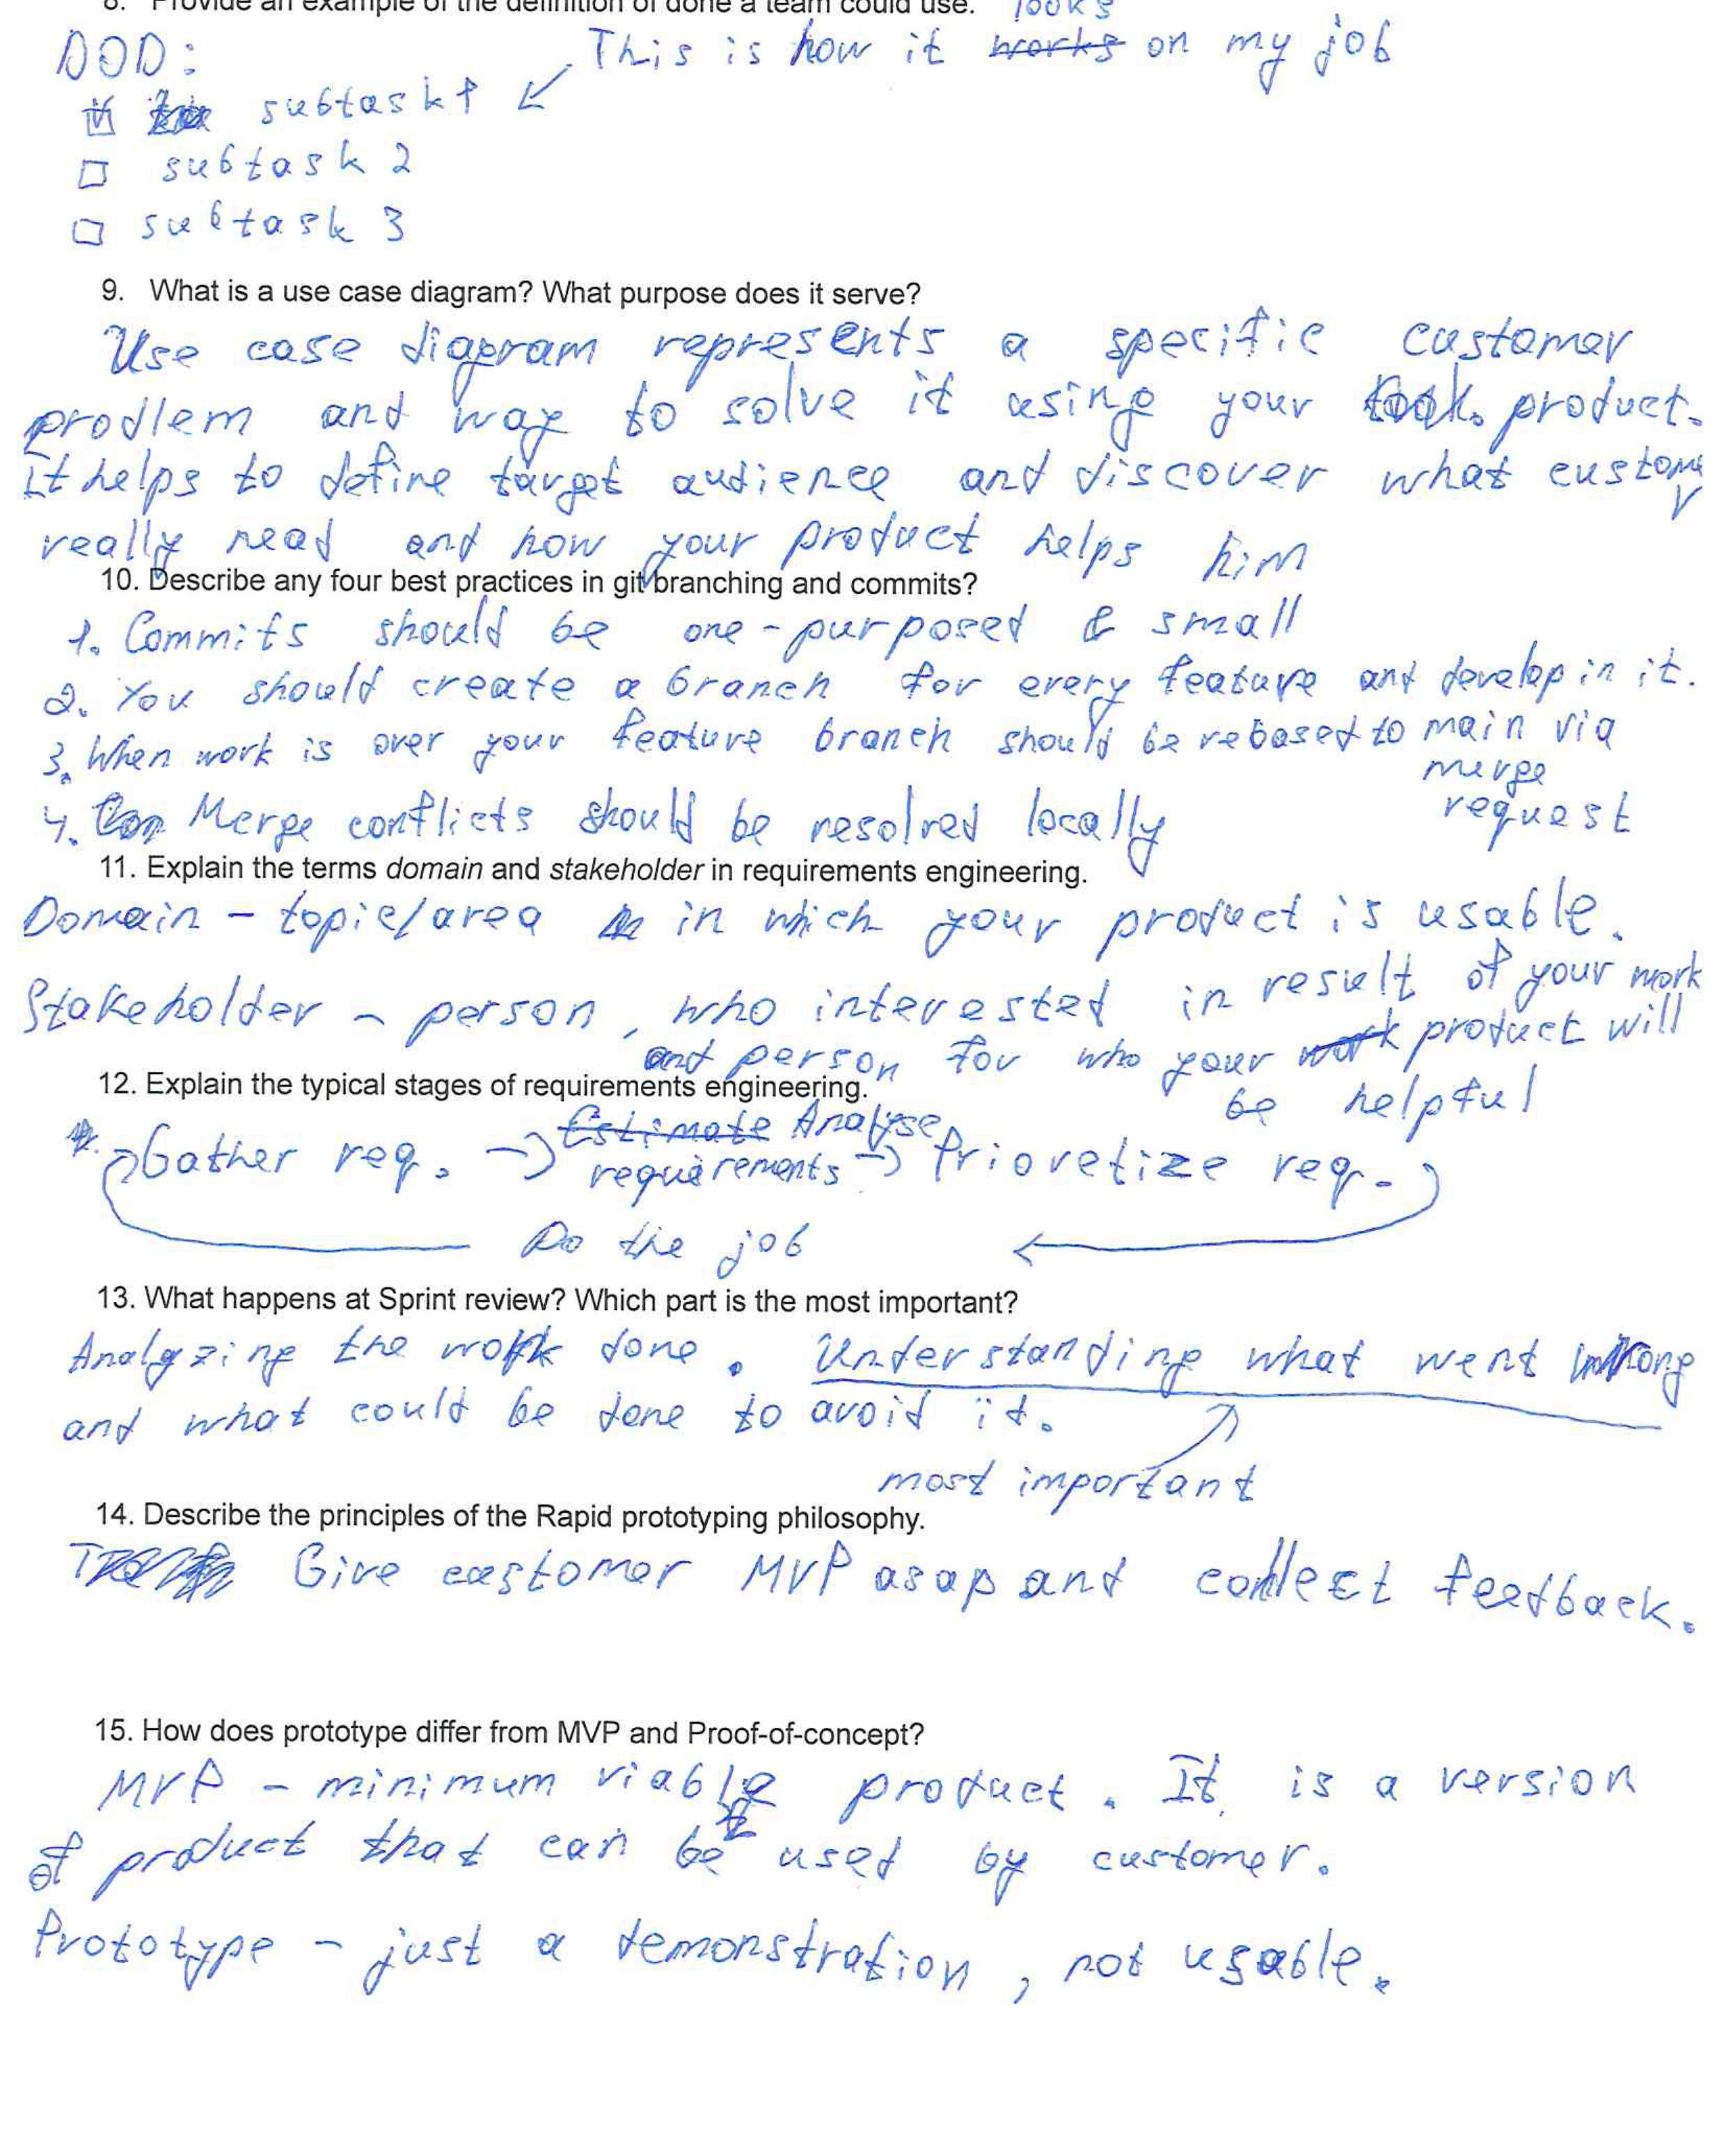 8. Provide an example of the definition of done a team could use.
looks
DOD: This is how it works on my job
subtask 1
subtask 2
subtask 3
9. What is a use case diagram? What purpose does it serve?
Use case diagram represents a specific customer
prodlem and way to solve it using your product.
It helps to define target audience and discover what customer
really need and how your product helps him
10. Describe any four best practices in git branching and commits?
1. Commits should be one-purposed & small
2. You should create a branch for every feature and develop in it.
3. When work is over your feature branch should be rebased to main via
merge
request
4. Merge conflicts should be resolved locally
11. Explain the terms domain and stakeholder in requirements engineering.
Domain - topic/area in which your product is usable.
Stakeholder - person, who interested in result of your work
and person for who your work product will
be helpful
12. Explain the typical stages of requirements engineering.
Gather req. → Estimate Analyse requirements → Prioretize req.
Do the job
13. What happens at Sprint review? Which part is the most important?
Analyzing the work done. Understanding what went wrong
and what could be done to avoid it.
most important
14. Describe the principles of the Rapid prototyping philosophy.
Give customer MVP asap and collect feedback.
15. How does prototype differ from MVP and Proof-of-concept?
MVP - minimum viable product. It is a version
of product that can be used by customer.
Prototype - just a demonstration, not usable.